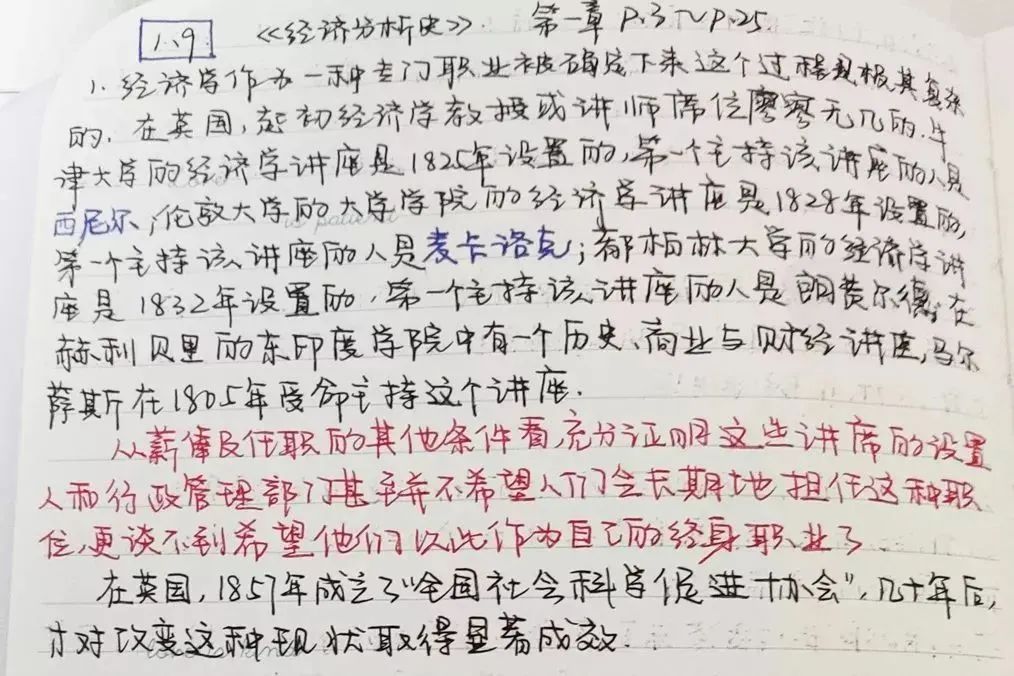 1.9 《经济分析史》 第一章 P.3~P.25
1. 经济学作为一种专门职业被确定下来这个过程是极其复杂
的. 在英国, 起初经济学教授或讲师席位寥寥无几的. 牛
津大学的经济学讲座是1825年设置的, 第一个主持该讲座的人是
西尼尔, 伦敦大学的大学学院的经济学讲座是1828年设置的,
第一个主持该讲座的人是麦卡洛克; 都柏林大学的经济学讲
座是1832年设置的, 第一个主持该讲座的人是朗费尔德; 在
赫利贝里的东印度学院中有一个历史、商业与财经讲座, 马尔
萨斯在1805年受命主持这个讲座.
从薪俸及任职的其他条件看, 充分证明这些讲席的设置
人和行政管理部门甚至并不希望人们会长期地担任这种职
位, 更谈不到希望他们以此作为自己的终身职业了
在英国, 1857年成立了“全国社会科学促进协会”, 几十年后,
才对改变这种现状取得显著成效.